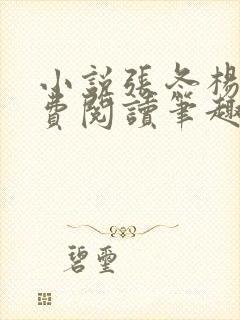 小説張冬楊
費閱讀筆趣
碧璽